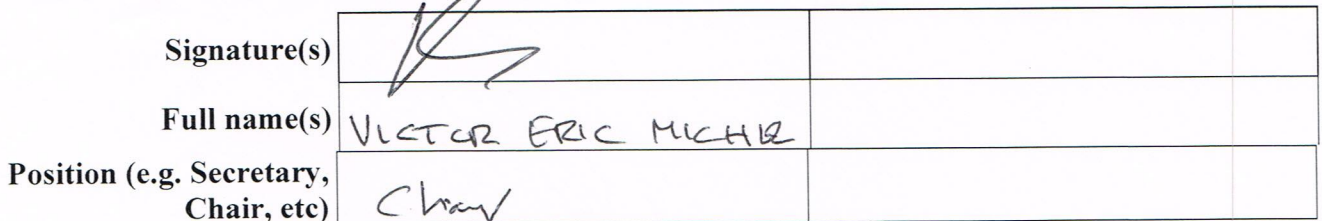 Signature(s)
Full name(s) VICTOR ERIC
Position (e.g. Secretary,
Chair, etc) Chair